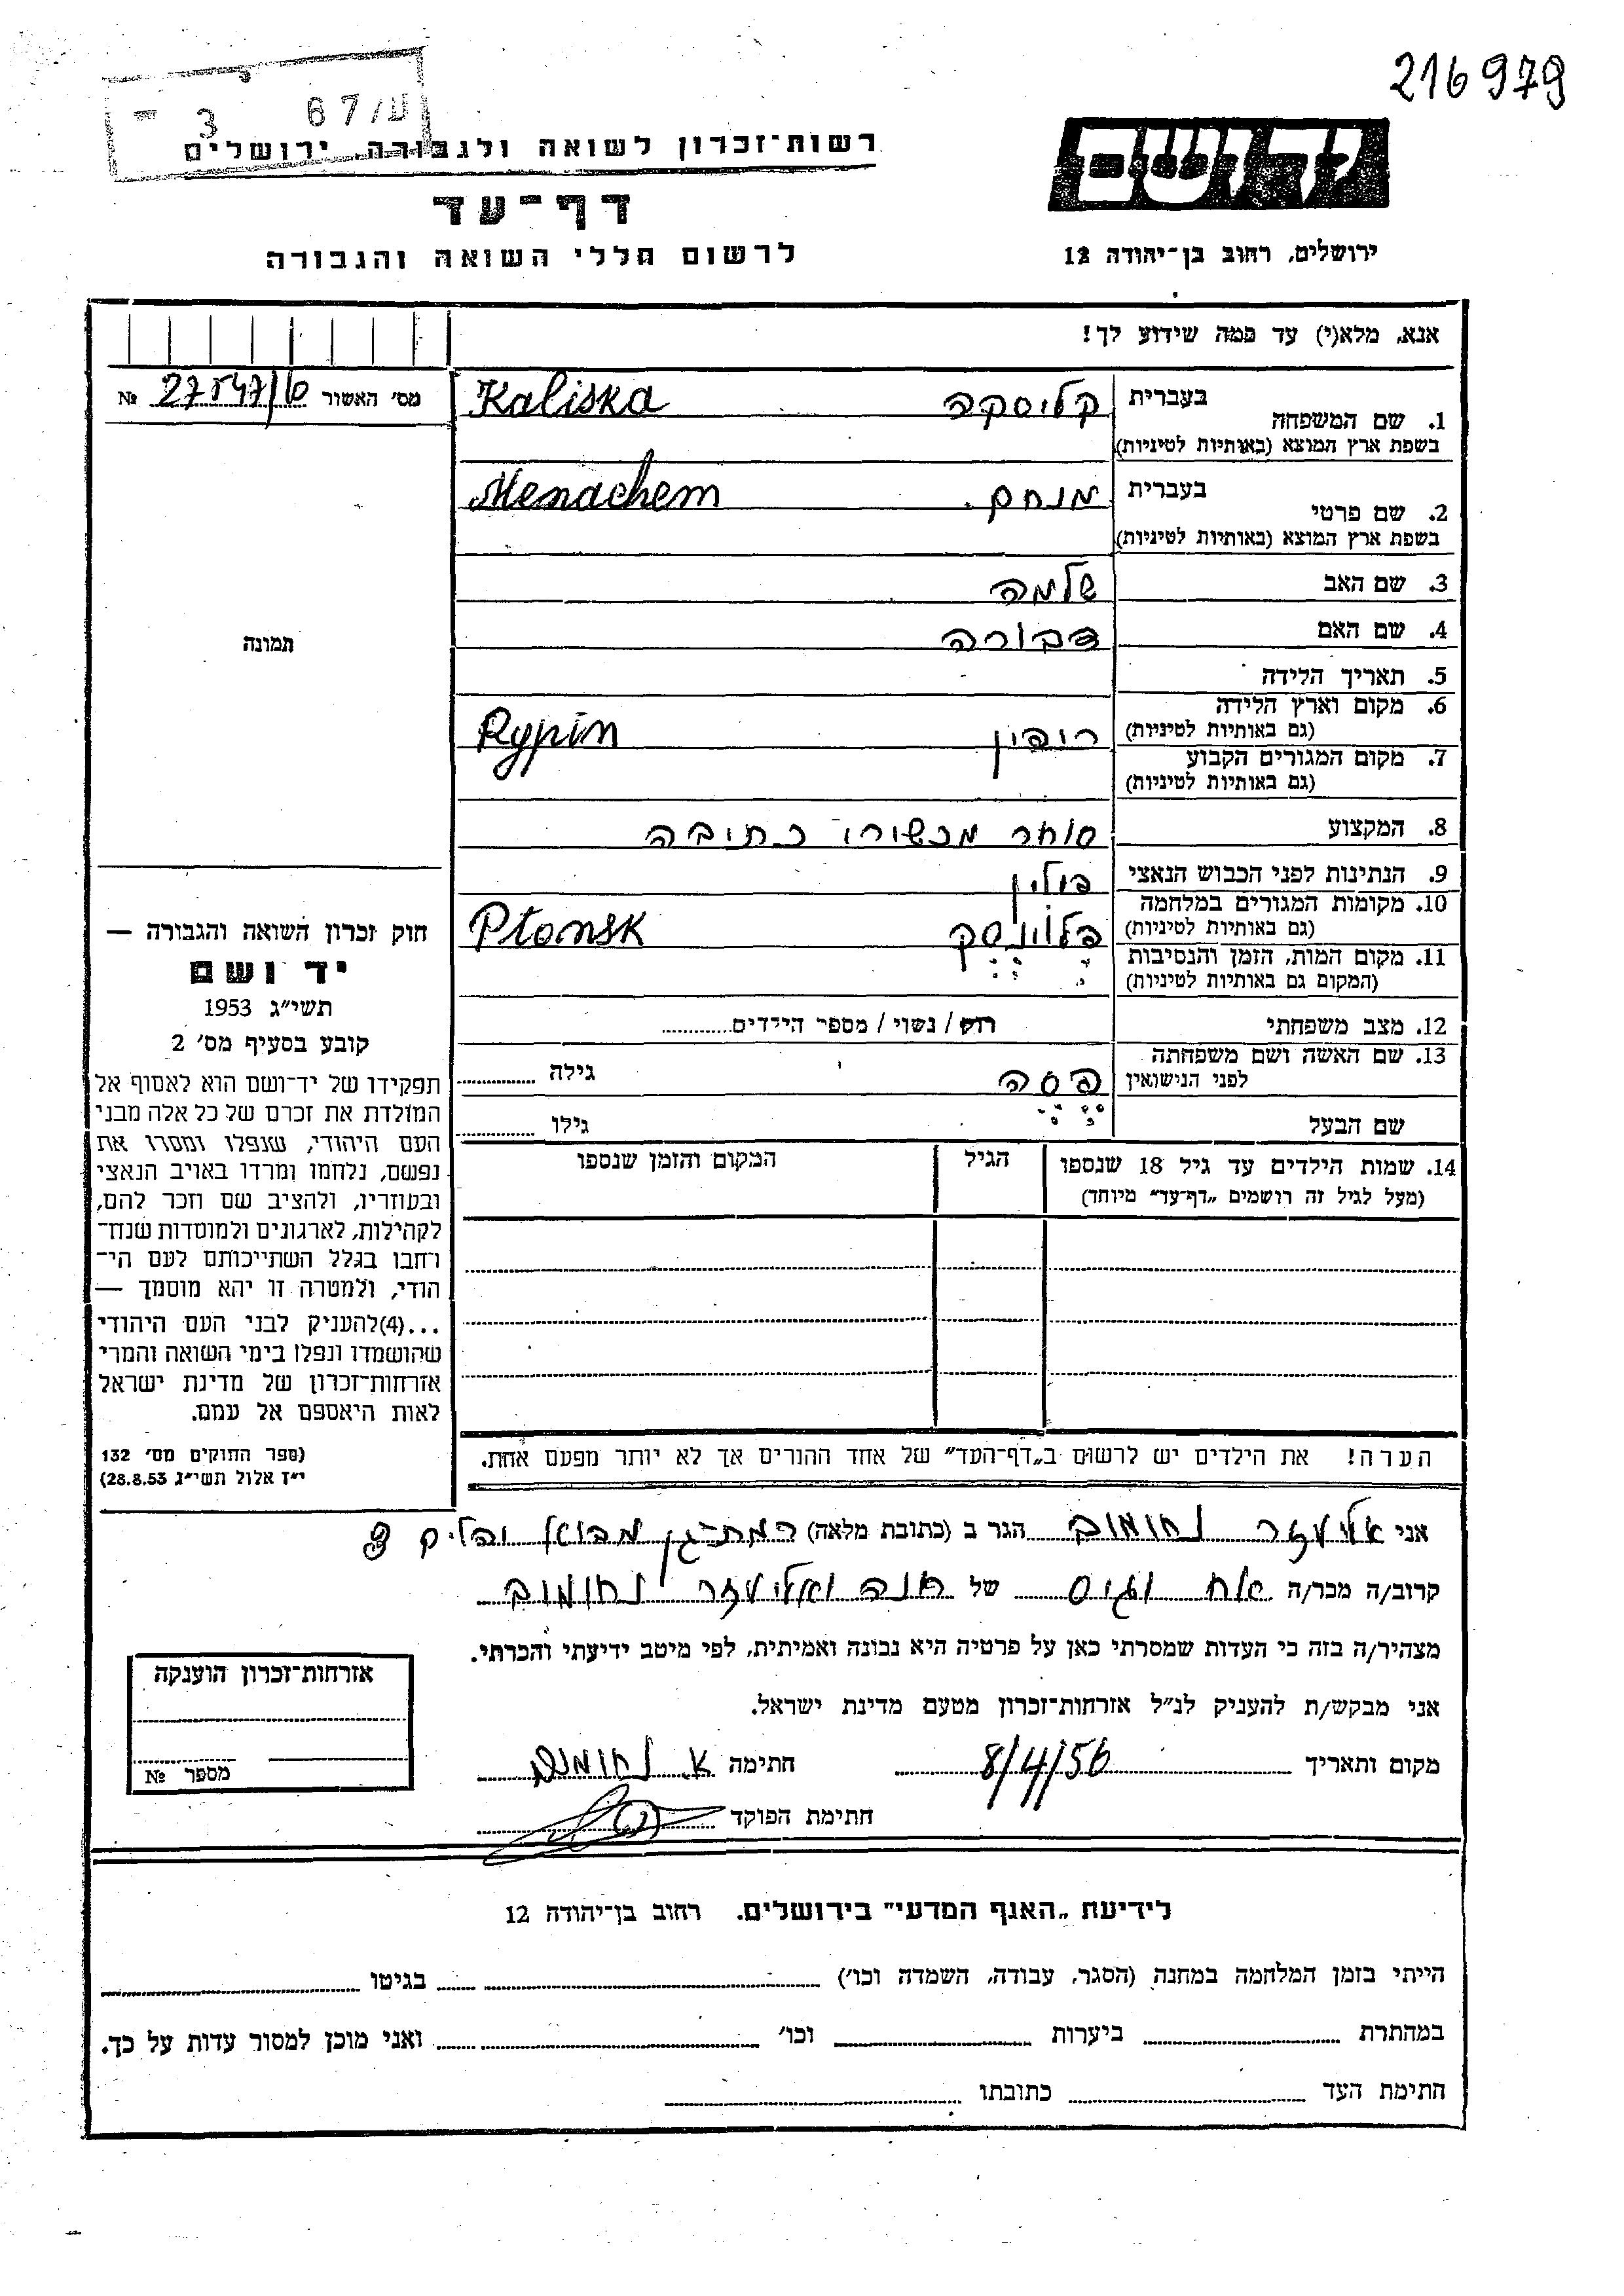 216979
67/ע 3 -
יד ושם
רשות־זכרון לשואה ולגבורה, ירושלים
דף־עד
לרשום חללי השואה והגבורה
ירושלים, רחוב בן־יהודה 12
אנא, מלא(י) עד כמה שידוע לך!
מס׳ האשור 27547/6 №
1. שם המשפחה בעברית קליסקה Kaliska
בשפת ארץ המוצא (באותיות לטיניות)
2. שם פרטי בעברית מנחם. Menachem
בשפת ארץ המוצא (באותיות לטיניות)
3. שם האב שלמה
4. שם האם דבורה
5. תאריך הלידה
6. מקום וארץ הלידה
(גם באותיות לטיניות) ריפין Rypin
7. מקום המגורים הקבוע
(גם באותיות לטיניות)
8. המקצוע סוחר מכשירי כתיבה
9. הנתינות לפני הכבוש הנאצי פולין
10. מקומות המגורים במלחמה
(גם באותיות לטיניות) פלוינסק Płonsk
11. מקום המות, הזמן והנסיבות
(המקום גם באותיות לטיניות)
12. מצב משפחתי רוק / נשוי / מספר הילדים
13. שם האשה ושם משפחתה
לפני הנישואין פסה גילה
שם הבעל גילו
14. שמות הילדים עד גיל 18 שנספו הגיל המקום והזמן שנספו
(מעל לגיל זה רושמים „דף־עד” מיוחד)
הערה! את הילדים יש לרשום ב„דף־העד” של אחד ההורים אך לא יותר מפעם אחת.
תמונה
חוק זכרון השואה והגבורה —
יד ושם
תשי״ג 1953
קובע בסעיף מס׳ 2
תפקידו של יד־ושם הוא לאסוף אל
המולדת את זכרם של כל אלה מבני
העם היהודי, שנפלו ומסרו את
נפשם, נלחמו ומרדו באויב הנאצי
ובעוזריו, ולהציב שם וזכר להם,
לקהילות, לארגונים ולמוסדות שנח־
רחבו בגלל השתייכותם לעם הי־
הודי, ולמטרה זו יהא מוסמך —
...(4)להעניק לבני העם היהודי
שהושמדו ונפלו בימי השואה והמרי
אזרחות־זכרון של מדינת ישראל
לאות היאספם אל עמם.
(ספר החוקים מס׳ 132
י״ז אלול תשי״ג 28.8.53)
אני אליעזר נחומוב הגר ב (כתובת מלאה) רמת־גן
קרוב/ה מכר/ה אח וגיס של חנה ואליעזר נחומוב
מצהיר/ה בזה כי העדות שמסרתי כאן על פרטיה היא נכונה ואמיתית, לפי מיטב ידיעתי והכרתי.
אני מבקש/ת להעניק לנ״ל אזרחות־זכרון מטעם מדינת ישראל.
מקום ותאריך 8/4/56 חתימה א. נחומוב
חתימת הפוקד
אזרחות־זכרון הוענקה
מספר №
לידיעת „האגף המדעי” בירושלים. רחוב בן־יהודה 12
הייתי בזמן המלחמה במחנה (הסגר, עבודה, השמדה וכו׳) בגיטו
במחתרת ביערות וכו׳ ואני מוכן למסור עדות על כך.
חתימת העד כתובתו